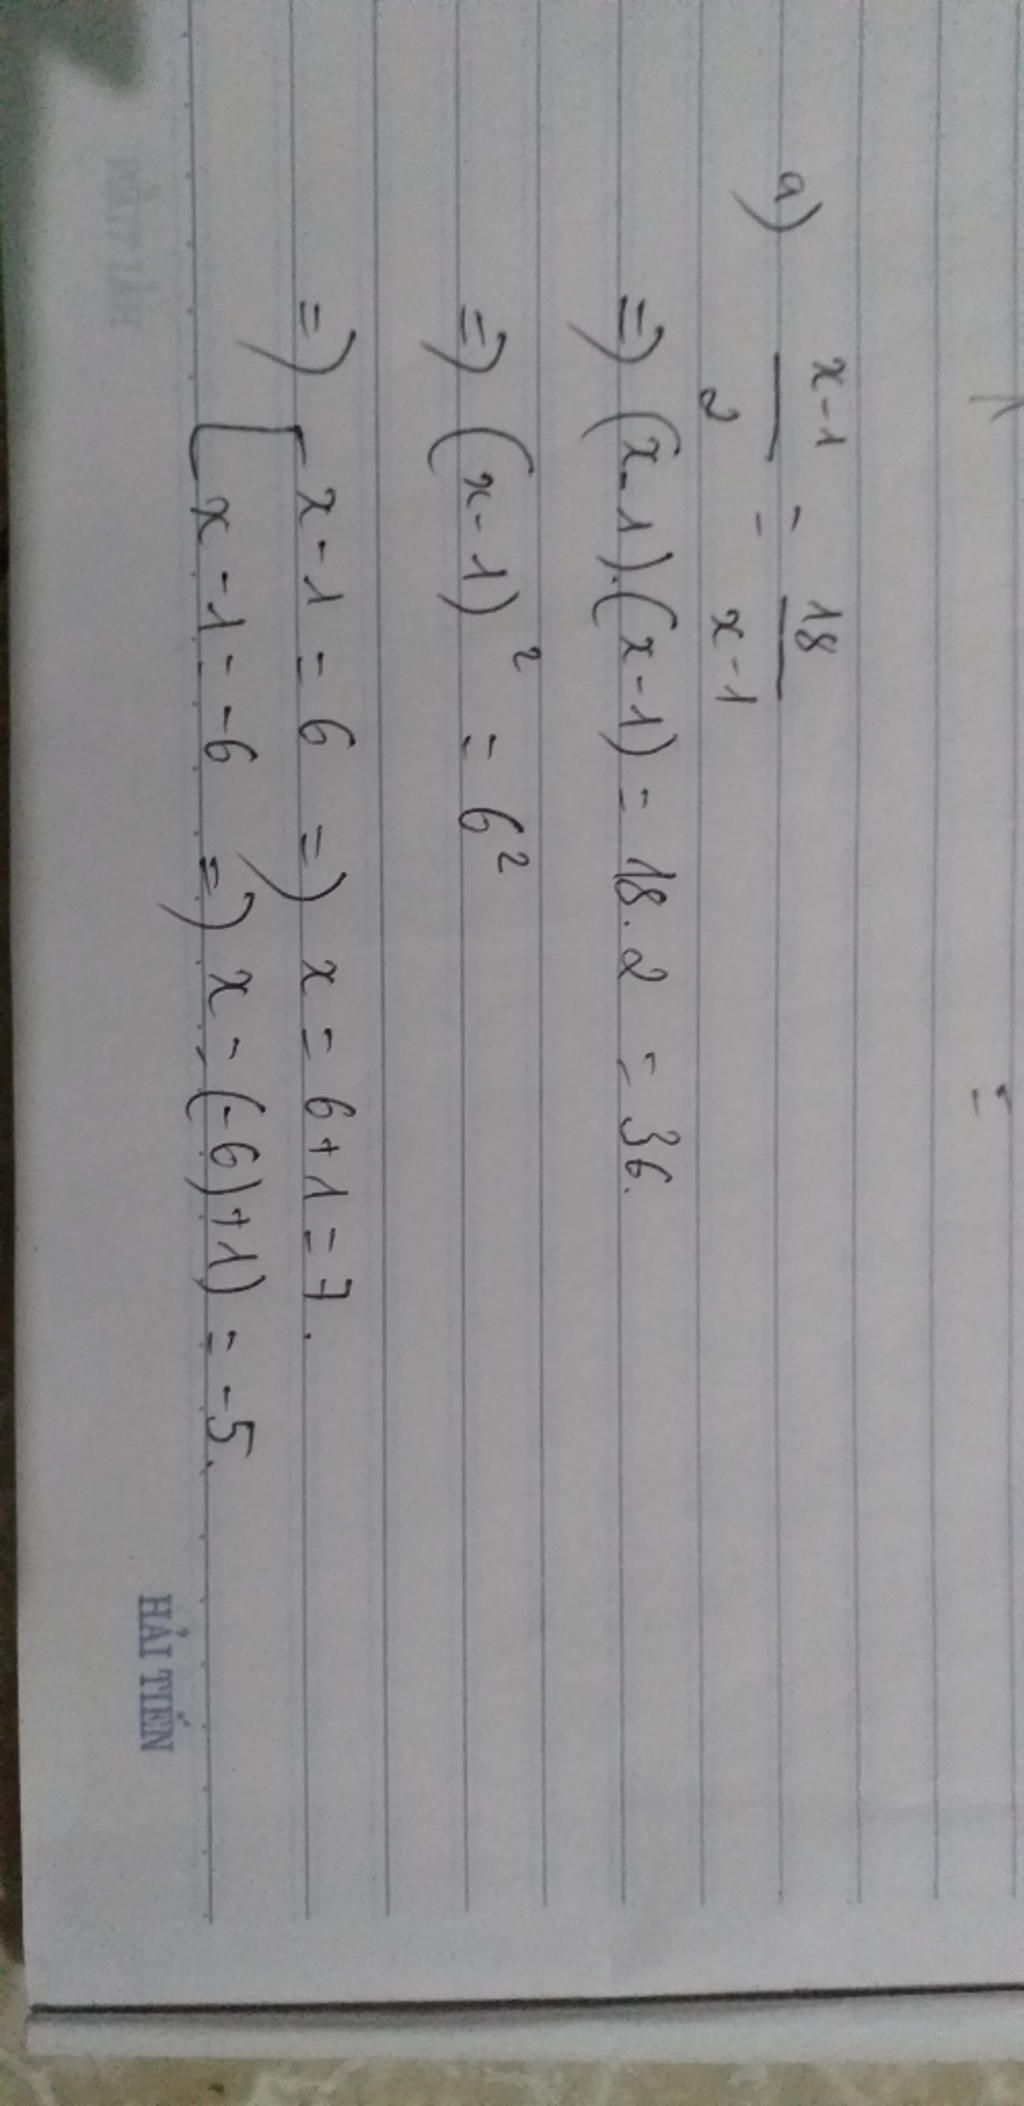 a) x-1/2 = 18/x-1
=) (x-1).(x-1) = 18.2 = 36.
=) (x-1)² = 6²
=) [ x-1 = 6 =) x = 6+1 = 7.
x-1 = -6 =) x = (-6)+1) = -5.
HẢI TIẾN